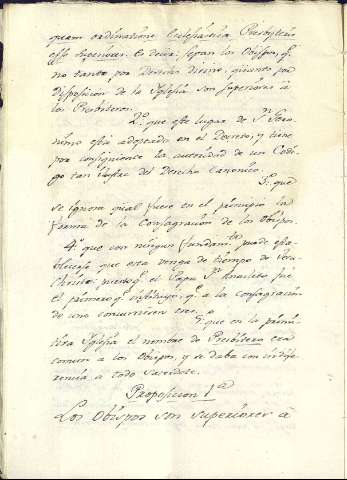 quam ordinatione Eclesiastica Presbiteris
esse superiores. Es decir: sepan los Obispos, q.e
no tanto por Derecho divino, quanto por
disposición de la Iglesia son superiores à
los Presbiteros.
2.º que este lugar de S.n Gero-
nimo está adoptado en el Decreto, y tiene
por consiguiente la autoridad de un Codi-
go tan del Derecho Canonico.
3.º que
se ignora qual fuese en el principio la
forma de la Consagración de los Obispos.
4.º que con ningun fundam.to puede esta-
blecerse que esta venga de tiempo de Jesu-
Christo; puesto q.e el Papa S.n Anacleto fué
el primero q.e instituyo, q.e a la consagración
de uno concurriesen tres.
5.º que en la primi-
tiva Iglesia el nombre de Presbitero era
comun a los Obispos, y se daba con indife-
rencia a todo Sacerdote.
Proposicion 1.ª
Los Obispos son superiores à